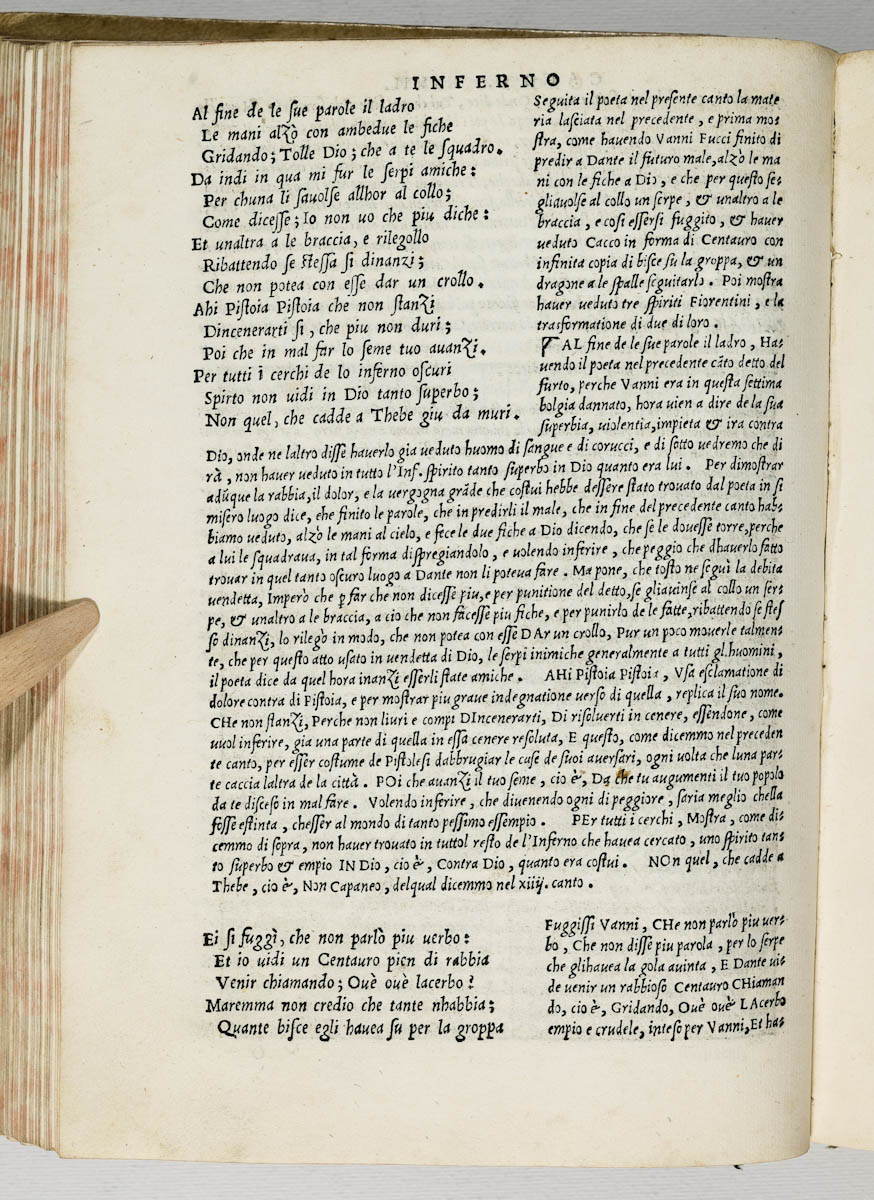 INFERNO
Al fine de le sue parole il ladro
Le mani alzò con ambedue le fiche
Gridando; Tolle Dio; che a te le squadro.
Da indi in qua mi fur le serpi amiche:
Per chuna li savolse allhor al collo;
Come dicesse; Io non uo che piu diche:
Et unaltra a le braccia, e rilegollo
Ribattendo se stessa si dinanzi;
Che non potea con esse dar un crollo.
Ahi Pistoia Pistoia che non stanzi
Dincenerarti si, che piu non duri;
Poi che in mal far lo seme tuo auanzi.
Per tutti i cerchi de lo inferno oscuri
Spirto non uidi in Dio tanto superbo;
Non quel, che cadde a Thebe giu da muri.
Seguita il poeta nel presente canto la mate
ria lasciata nel precedente, e prima mo-
stra, come hauendo Vanni Fucci finito di
predir a Dante il futuro male, alzò le ma
ni con le fiche a Dio, e che per questo se-
gliauolse al collo un serpe, & unaltro a le
braccia, e cosi essersi fuggito, & hauer
ueduto Cacco in forma di Centauro con
infinita copia di bisce su la groppa, & un
dragone a le spalle seguitarlo. Poi mostra
hauer ueduto tre spiriti Fiorentini, e la
trasformatione di due di loro.
AL fine de le sue parole il ladro, Ha-
uendo il poeta nel precedente cāto detto del
furto, perche Vanni era in questa settima
bolgia dannato, hora uien a dire de la sua
superbia, uiolentia, impieta & ira contra
Dio, onde ne laltro disse hauerlo gia ueduto huomo di sangue e di corucci, e di sotto uedremo che di
rà, non hauer ueduto in tutto l'Inf. spirito tanto superbo in Dio quanto era lui. Per dimostrar
adūque la rabbia, il dolor, e la uergogna grāde che costui hebbe dessere stato trouato dal poeta in si
misero luogo dice, ehe finito le parole, che in predirli il male, che in fine del precedente canto hab-
biamo ueduto, alzò le mani al cielo, e fece le due fiche a Dio dicendo, che se le douesse torre, perche
a lui le squadraua, in tal forma dispregiandolo, e uolendo inferire, che peggio che dhauerlo fatto
trouar in quel tanto oscuro luogo a Dante non li poteua fare. Ma pone, che tosto ne seguì la debita
uendetta, Imperò che ꝑ far che non dicesse piu, e per punitione del detto, se gliauinse al collo un ser-
pe, & unaltro a le braccia, a cio che non facesse piu fiche, e per punirlo de le fatte, ribattendo se stes
so dinanzi, lo rilegò in modo, che non potea con esse DAr un crollo, Pur un poco mouerle talmen-
te, che per questo atto usato in uendetta di Dio, le serpi inimiche generalmente a tutti gl.huomini,
il poeta dice da quel hora inanzi esserli state amiche. AHi Pistoia Pistoia, Vsa esclamatione di
dolore contra di Pistoia, e per mostrar piu graue indegnatione uerso di quella, replica il suo nome.
CHe non stanzi, Perche non liuri e compi DIncenerarti, Di risoluerti in cenere, essendone, come
uuol inferire, gia una parte di quella in essa cenere resoluta, E questo, come dicemmo nel preceden
te canto, per esser costume de Pistolesi dabbrugiar le case de suoi auersari, ogni uolta che luna par-
te caccia laltra de la città. POi che auanzi il tuo seme, cio è, Da che tu augumenti il tuo popolo
da te disceso in mal fare. Volendo inferire, che diuenendo ogni di peggiore, saria meglio chella
fosse estinta, chesser al mondo di tanto pessimo essempio. PEr tutti i cerchi, Mostra, come di-
cemmo di sopra, non hauer trouato in tuttol resto de l'Inferno che hauea cercato, uno spirito tan-
to superbo & empio IN Dio, cio è, Contra Dio, quanto era costui. NOn quel, che cadde a
Thebe, cio è, Non Capaneo, delqual dicemmo nel xiiij. canto.
Ei si fuggì, che non parlò piu uerbo:
Et io uidi un Centauro pien di rabbia
Venir chiamando; Ouè ouè lacerbo?
Maremma non credio che tante nhabbia;
Quante bisce egli hauea su per la groppa
Fuggissi Vanni, CHe non parlò piu uer-
bo, Che non disse piu parola, per lo serpe
che glihauea la gola auinta, E Dante ui-
de uenir un rabbioso Centauro CHiaman
do, cio è, Gridando, Ouè ouè LAcerbo
empio e crudele, inteso per Vanni, Et ha-